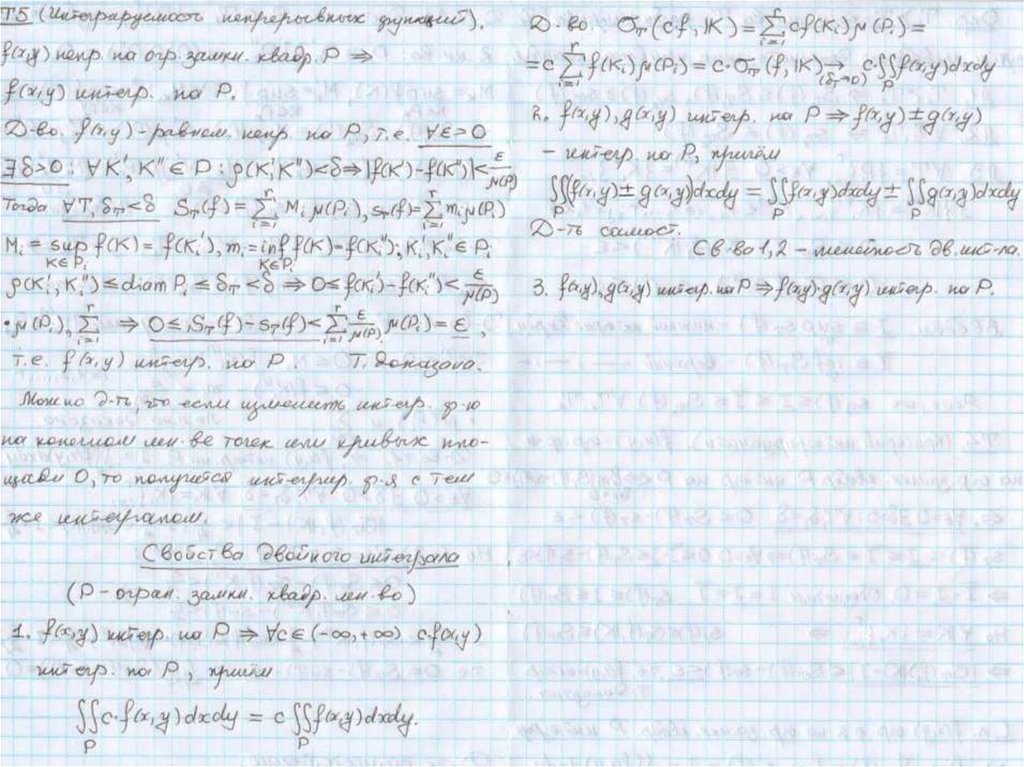 Т5 (Интегрируемость непрерывных функций).
f(x,y) непр. на огр. замкн. квадр. P ⇒
f(x,y) интегр. на P.
Д-во. f(x,y) - равном. непр. на P, т.е. ∀ε>0
∃δ>0: ∀K', K'' ∈ P : ρ(K',K'')<δ ⇒ |f(K')-f(K'')|< ε/μ(P)
Тогда ∀T, δ_T<δ S_T(f) = ∑_{i=1}^{r} M_i μ(P_i), s_T(f) = ∑_{i=1}^{r} m_i μ(P_i)
M_i = sup_{K∈P_i} f(K) = f(K_i'), m_i = inf_{K∈P_i} f(K) - f(K_i''), K_i', K_i'' ∈ P_i
ρ(K_i', K_i'') ≤ diam P_i ≤ δ_T < δ ⇒ 0 ≤ f(K_i') - f(K_i'') < ε/μ(P)
·μ(P_i), ∑_{i=1}^{r} ⇒ 0 ≤ S_T(f) - s_T(f) < ∑_{i=1}^{r} ε/μ(P) μ(P_i) = ε,
т.е. f(x,y) интегр. на P. Т. доказана.
Можно д-ть, что если изменить интегр. ф-ю
на конечном мн-ве точек или кривых пло-
щади 0, то получится интегрир. ф-я с тем
же интегралом.
Свойства двойного интеграла
(P - огран. замкн. квадр. мн-во)
1. f(x,y) интегр. на P ⇒ ∀c∈(-∞,+∞) c·f(x,y)
интегр. на P, причём
∬_P c·f(x,y)dxdy = c∬_P f(x,y)dxdy.
Д-во. σ_T(c·f, K) = ∑_{i=1}^{r} cf(K_i)μ(P_i) =
= c ∑_{i=1}^{r} f(K_i)μ(P_i) = c·σ_T(f, K) →_{(δ_T→0)} c·∬_P f(x,y)dxdy
2. f(x,y), g(x,y) интегр. на P ⇒ f(x,y) ± g(x,y)
- интегр. на P, причём
∬_P (f(x,y) ± g(x,y))dxdy = ∬_P f(x,y)dxdy ± ∬_P g(x,y)dxdy
Д-ть самост.
Св-ва 1,2 - линейность дв. инт-ла.
3. f(x,y), g(x,y) интегр. на P ⇒ f(x,y)·g(x,y) интегр. на P.